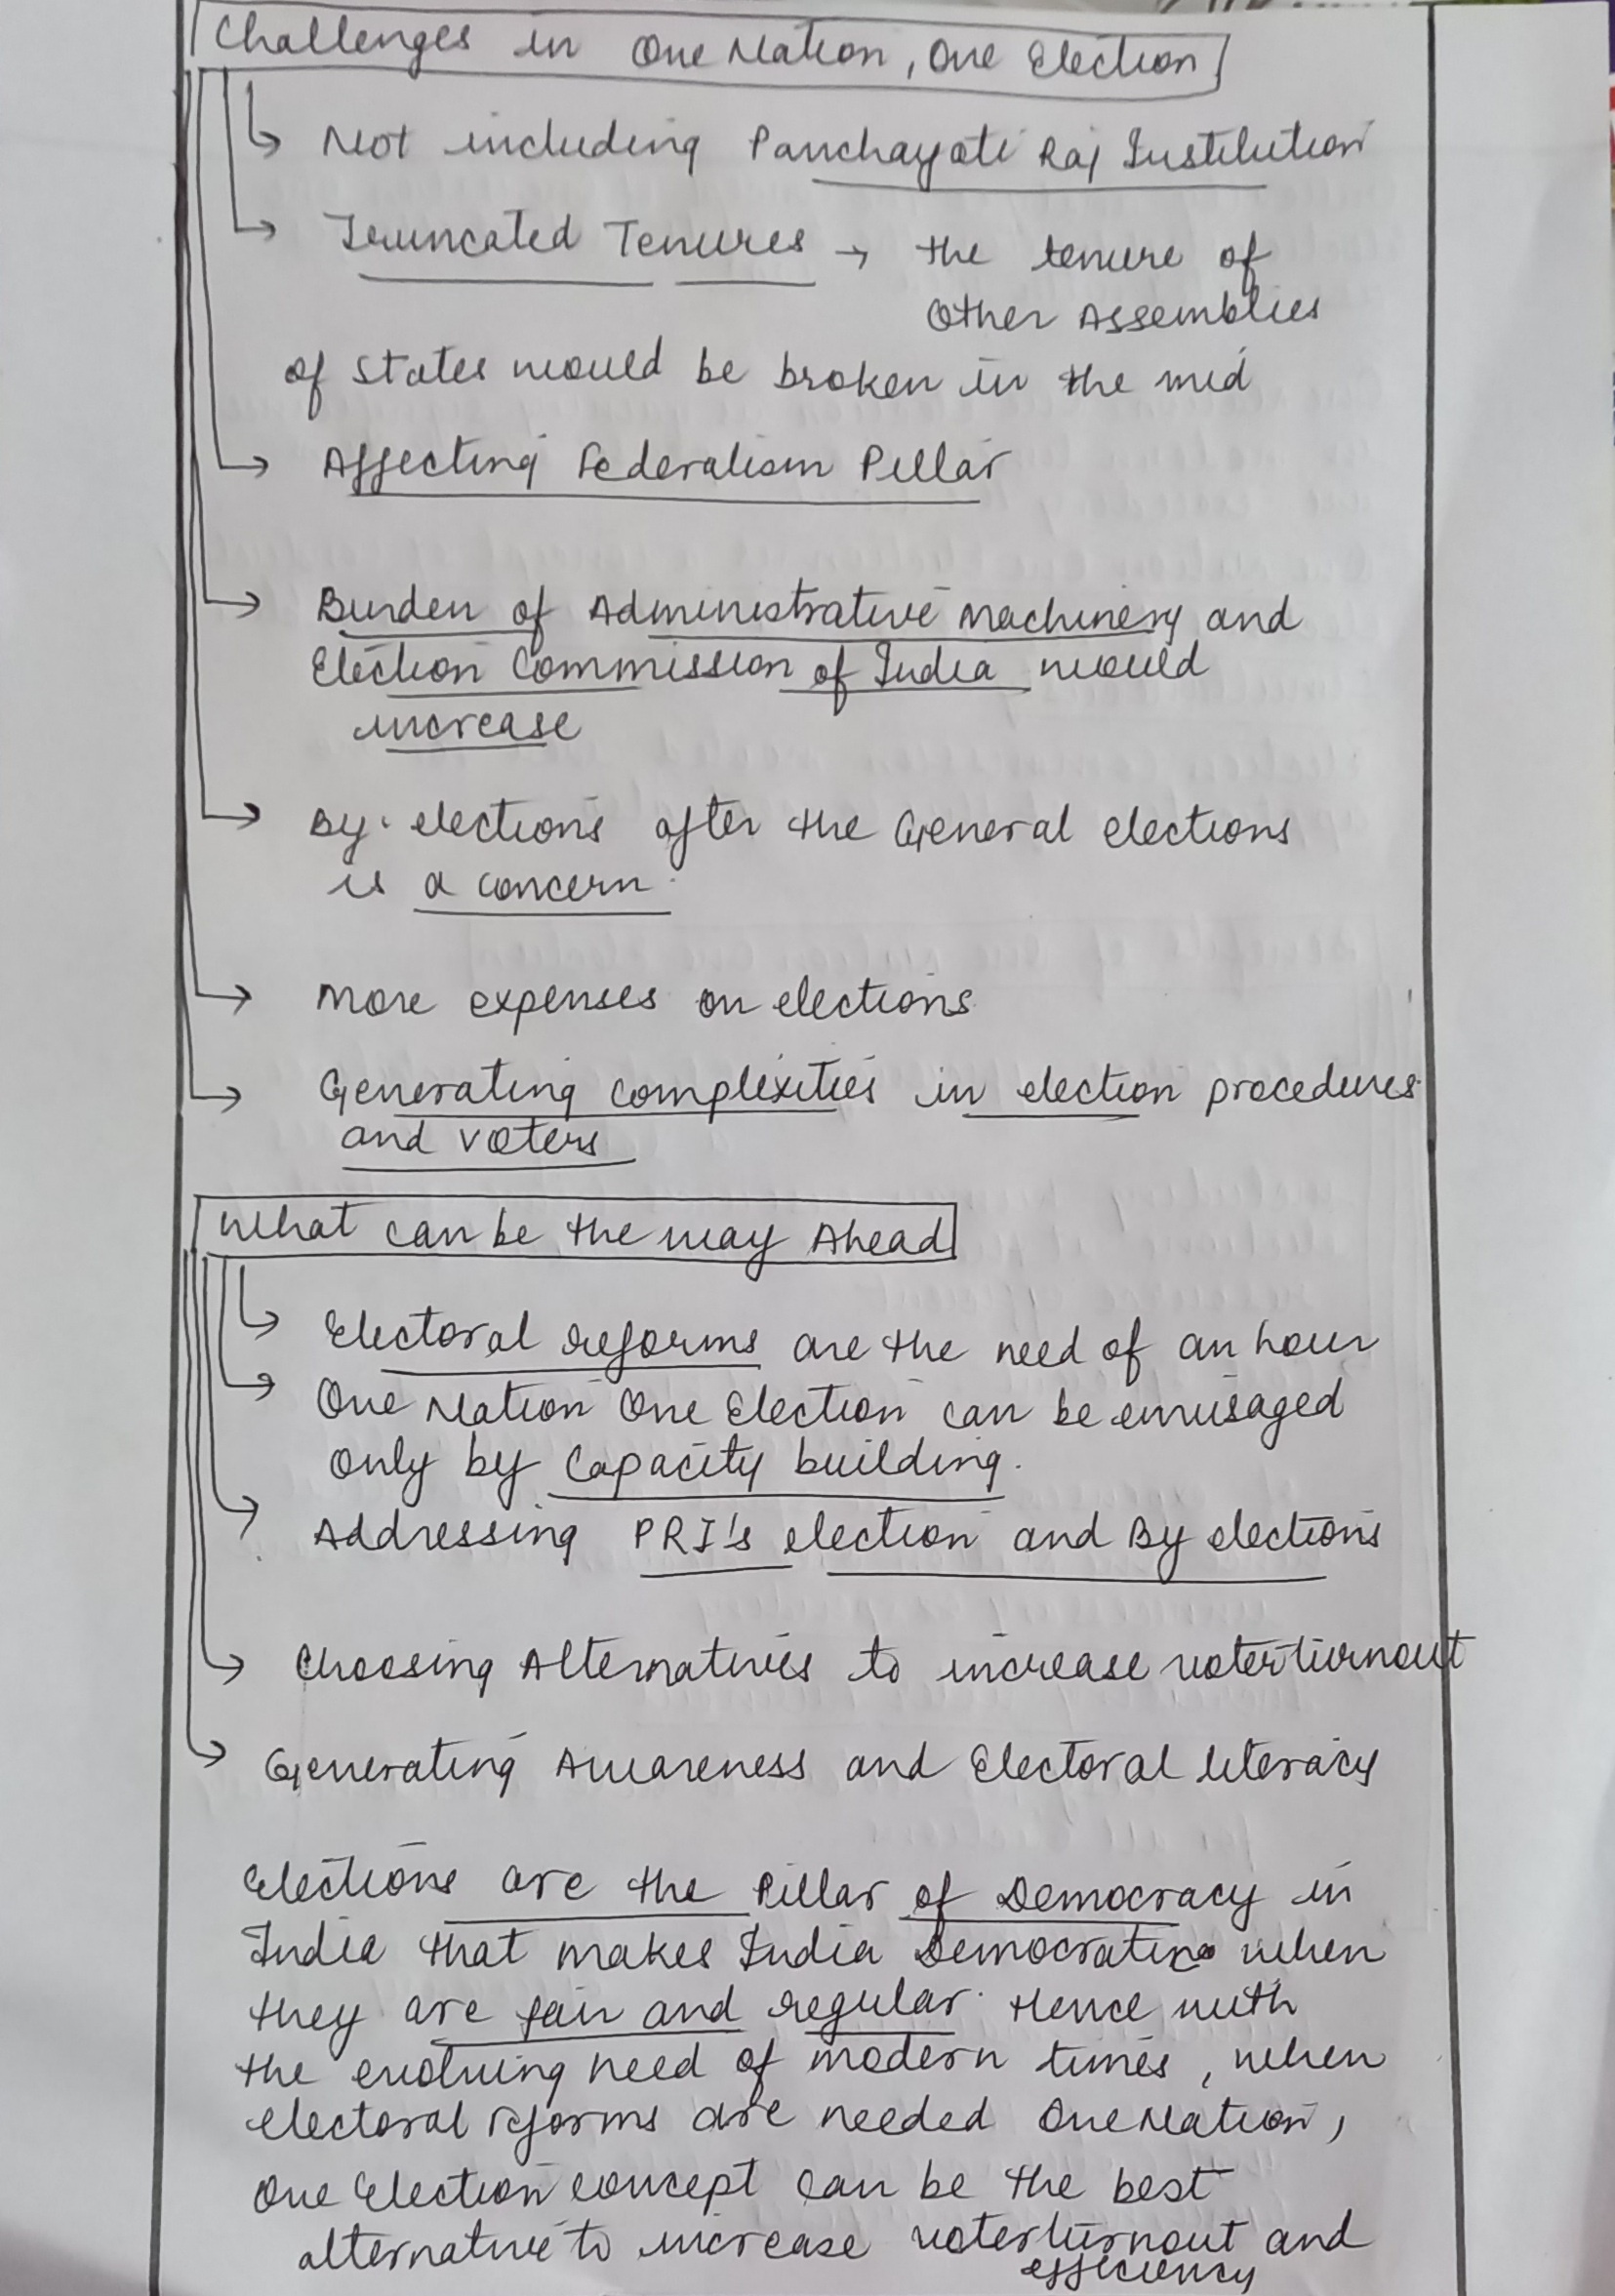 Challenges in One Nation, One Election
Not including Panchayati Raj Institution
Truncated Tenures → the tenure of
Other Assemblies
of States would be broken in the mid
Affecting Federalism Pillar
Burden of Administrative Machinery and
Election Commission of India would
increase
By-elections after the General elections
is a concern.
More expenses on elections
Generating complexities in election procedures
and voters
What can be the way Ahead
Electoral reforms are the need of an hour
One Nation One Election can be envisaged
only by Capacity building.
Addressing PRI's election and By elections
Choosing Alternatives to increase voter turnout
Generating Awareness and Electoral literacy
Elections are the Pillar of Democracy in
India that makes India Democratic when
they are fair and regular. Hence with
the evolving need of modern times, when
electoral reforms are needed One Nation,
One Election concept can be the best
alternative to increase voter turnout and
effeciency